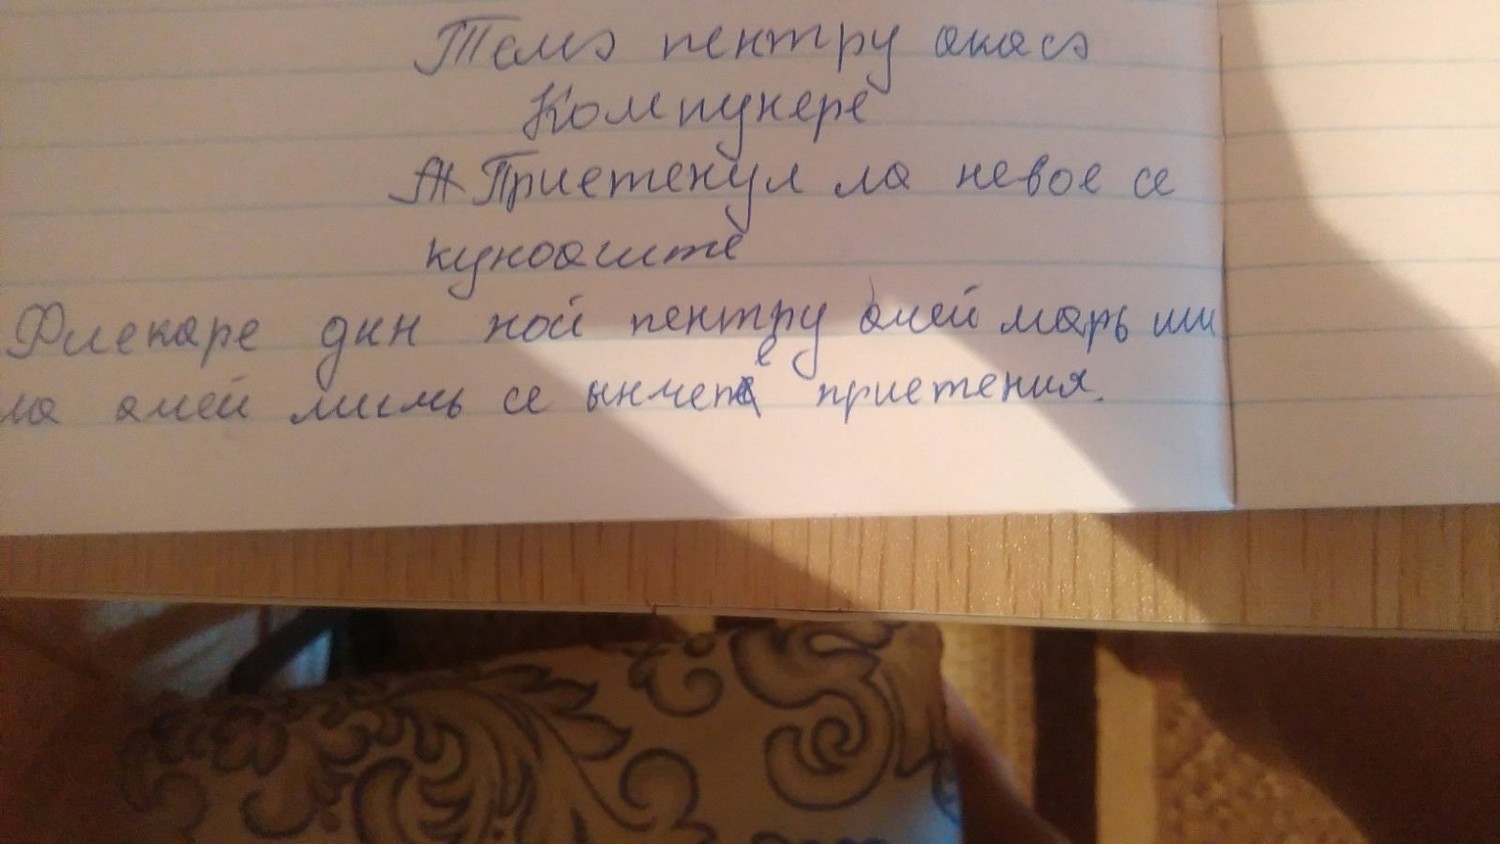 Темэ пентру акасэ
Компунере
Приетенул ла невое се
куноаште
Фиекаре дин ной пентру алей марь ши
ла алей мичь се ынчепе приетения.